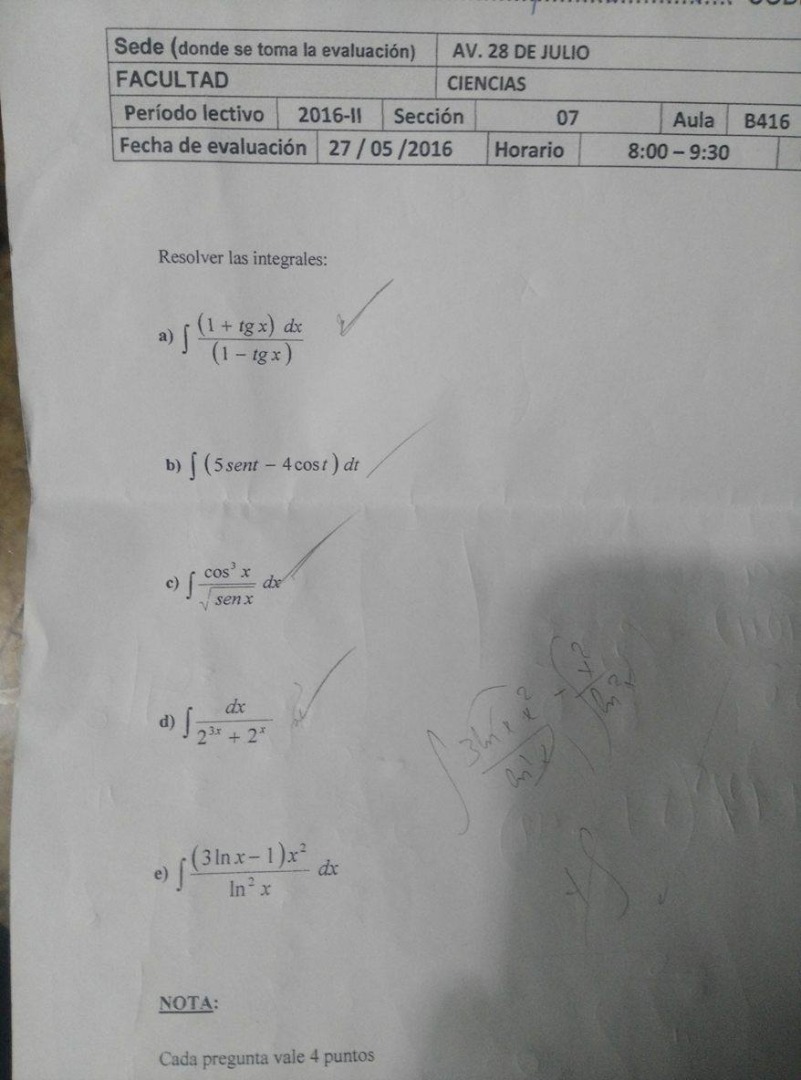 Sede (donde se toma la evaluación) AV. 28 DE JULIO
FACULTAD CIENCIAS
Período lectivo 2016-II Sección 07 Aula B416
Fecha de evaluación 27 / 05 /2016 Horario 8:00 – 9:30
Resolver las integrales:
a) ∫ (1 + tg x) dx / (1 − tg x)
b) ∫ (5 sent − 4 cos t) dt
c) ∫ cos³ x / √sen x dx
d) ∫ dx / 2³ˣ + 2ˣ
e) ∫ (3 ln x − 1) x² / ln² x dx
NOTA:
Cada pregunta vale 4 puntos